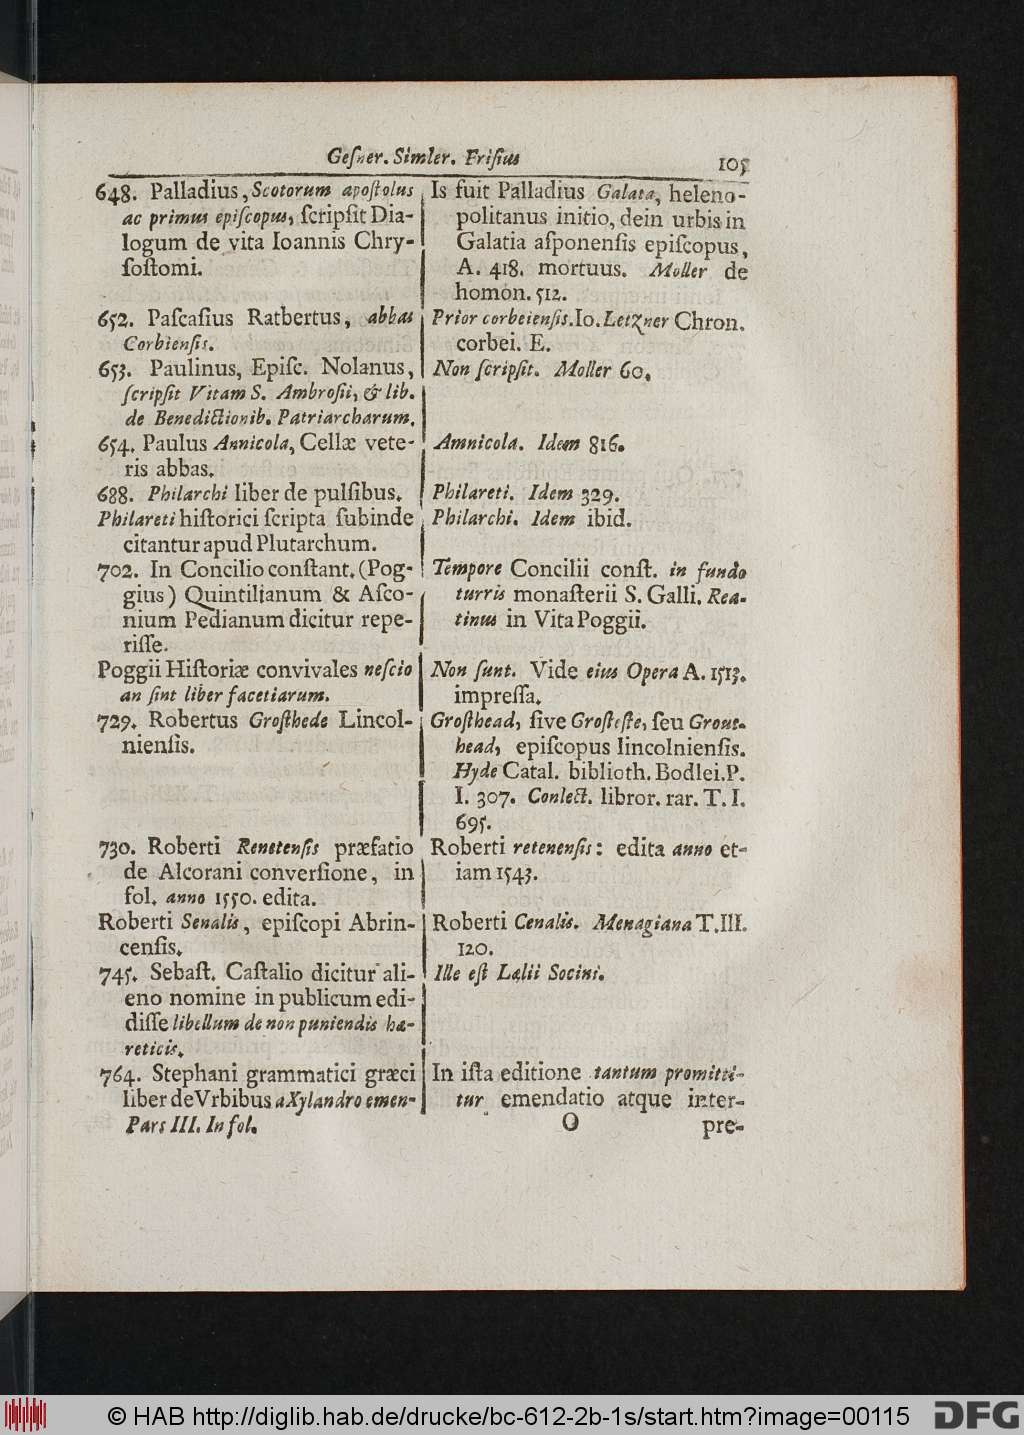 Geſner. Simler. Friſius
105
648. Palladius, Scotorum apoſtolus
ac primus epiſcopus, ſcripſit Dia-
logum de vita Ioannis Chry-
ſoſtomi.
652. Paſcaſius Ratbertus, abbas
Corbienſis.
653. Paulinus, Epiſc. Nolanus,
ſcripſit Vitam S. Ambroſii, & lib.
de Benedictionib. Patriarcharum.
654. Paulus Annicola, Cellæ vete-
ris abbas.
688. Philarchi liber de pulſibus.
Philareti hiſtorici ſcripta ſubinde
citantur apud Plutarchum.
702. In Concilio conſtant. (Pog-
gius) Quintilianum & Aſco-
nium Pedianum dicitur repe-
riſſe.
Poggii Hiſtoriæ convivales neſcio
an ſint liber facetiarum.
729. Robertus Groſthede Lincol-
nienſis.
730. Roberti Renetenſis præfatio
de Alcorani converſione, in
fol. anno 1550. edita.
Roberti Senalis, epiſcopi Abrin-
cenſis.
745. Sebaſt. Caſtalio dicitur ali-
eno nomine in publicum edi-
diſſe libellum de non puniendis hæ-
reticis.
764. Stephani grammatici græci
liber de Vrbibus a Xylandro emen-
Pars III. In fol.
Is fuit Palladius Galata, heleno-
politanus initio, dein urbis in
Galatia aſponenſis epiſcopus,
A. 418. mortuus. Moller de
homon. 512.
Prior corbeienſis. Io. Letzner Chron.
corbei. E.
Non ſcripſit. Moller 60.
Amnicola. Idem 816.
Philareti. Idem 329.
Philarchi. Idem ibid.
Tempore Concilii conſt. in fundo
turris monaſterii S. Galli. Rea-
tinus in Vita Poggii.
Non ſunt. Vide eius Opera A. 1513.
impreſſa.
Groſthead, ſive Groſteſte, ſeu Grout-
head, epiſcopus lincolnienſis.
Hyde Catal. biblioth. Bodlei. P.
I. 307. Conlect. libror. rar. T. I.
695.
Roberti retenenſis: edita anno et-
iam 1543.
Roberti Cenalis. Menagiana T. III.
120.
Ille eſt Lælii Socini.
In iſta editione tantum promitti-
tur emendatio atque inter-
O
pre-
© HAB http://diglib.hab.de/drucke/bc-612-2b-1s/start.htm?image=00115
DFG